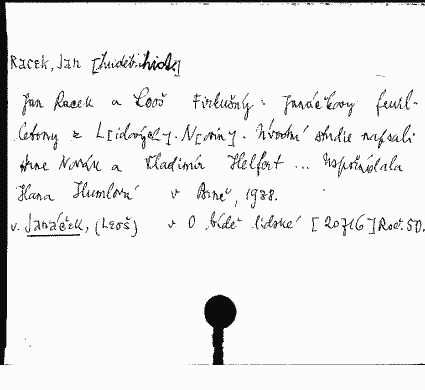 Racek, Jan [hudeb. hist.]
Jan Racek a Leoš Firkušný: Janáčkovy feuil-
letony z L[idových]. N[ovin]. Úvodní studie napsali
Arne Novák a Vladimír Helfert ... Uspořádala
Hana Humlová v Brně, 1988.
v. Janáček, (Leoš) v O bídě lidské [20716] Roč. 50.